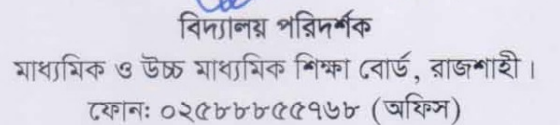 বিদ্যালয় পরিদর্শক
মাধ্যমিক ও উচ্চ মাধ্যমিক শিক্ষা বোর্ড, রাজশাহী।
ফোন: ০২৫৮৮৮৫৫৭৬৮ (অফিস)